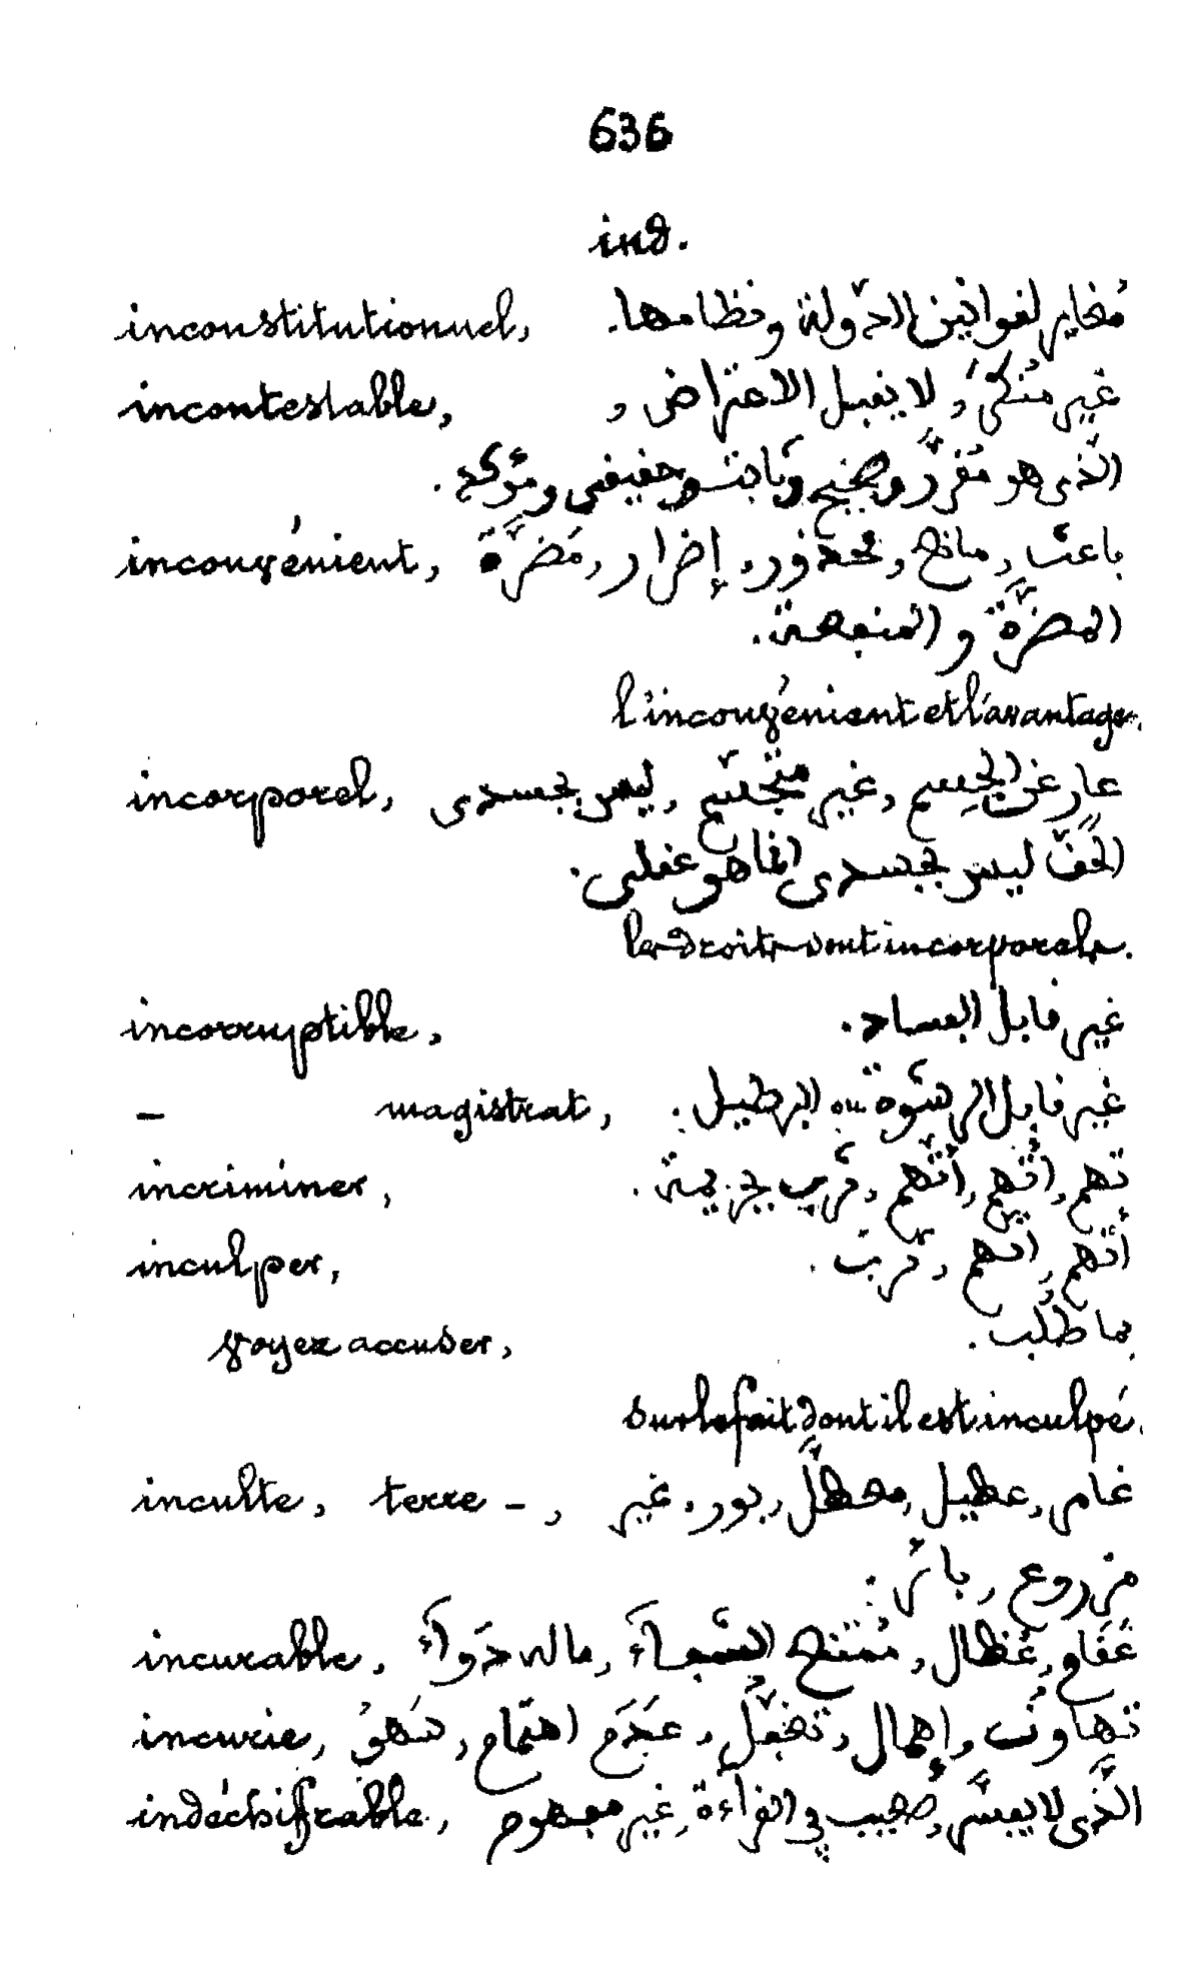 636
ind.
inconstitutionnel, مُغاير لقوانين الدّولة ونظامها.
incontestable, غير مُنكَر، لا يقبل الاعتراض،
الّذى هو مُقرَّر وصحيح وثابت وحقيقى ومؤكد.
inconvénient, باعث، مانع، محذور، إضرار، مَضرَّة
المضرَّة و المنفعة.
l'inconvénient et l'avantage.
incorporel, عارٍ عن الجِسم، غير متجسّم، ليس بجسدى
الحَقّ ليس بجسدى انما هو عقلى.
les droits sont incorporels.
incorruptible, غير قابل الفساد.
— magistrat, غير قابل الرشوة ou البرطيل.
incriminer, تهم، اتّهم، أتهم، قرّب بجريمة.
inculper, أتهم، اتهم، قرّب.
voyez accuser, بما طُلب.
sur le fait dont il est inculpé.
inculte, terre -, غامر، عطيل، معطَّل، بور، غير
مزروع، بائر.
incurable, عُقام، عُضال، مُمتنع الشّفاء، ما له دَواء
incurie, تهاوُن، إهمال، تغفّل، عَدَم اهتمام، سَهوٌ
indéchiffrable, الّذى لا يفسَّر، صعيب فى القراءة، غير مفهوم